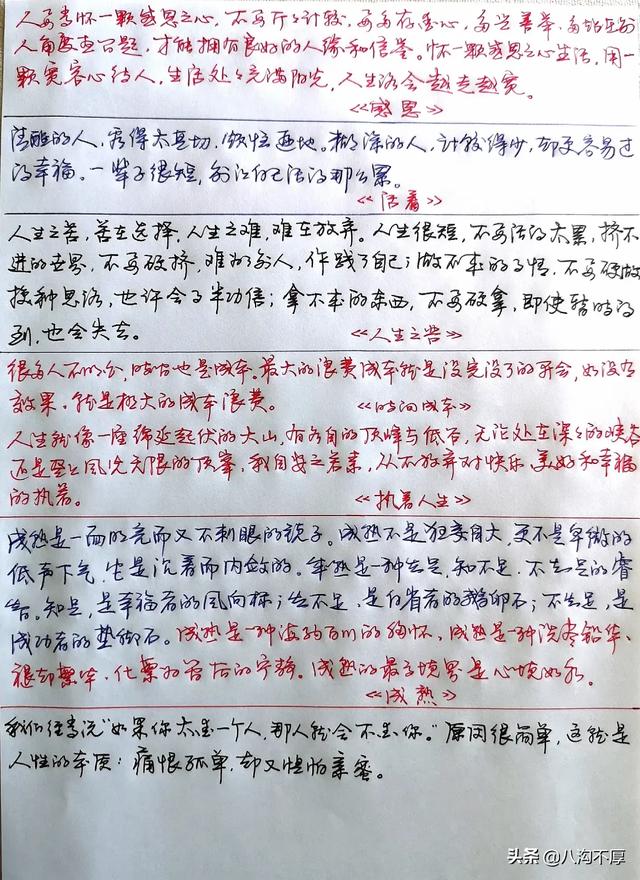 人要常怀一颗感恩之心，不要斤斤计较，要多存善心，多兴善举，多站在别
人角度查问题，才能拥有良好的人缘和信誉。怀一颗感恩之心生活，用一
颗宽容心待人，生活处处充满阳光，人生路会越走越宽。
《感恩》
清醒的人，看得太真切，烦恼遍地。糊涂的人，计较得少，却更容易过
得幸福。一辈子很短，别让自己活得那么累。
《活着》
人生之苦，苦在选择，人生之难，难在放弃。人生很短，不要活的太累，挤不
进的世界，不要硬挤，难为了别人，作践了自己；做不来的事情，不要硬做
换种思路，也许会事半功倍；拿不来的东西，不要硬拿，即使暂时得
到，也会失去。
《人生之苦》
很多人不明白，时间也是成本。最大的浪费成本就是没完没了的开会，如没有
效果，就是极大的成本浪费。
《时间成本》
人生就像一座绵延起伏的大山，有各自的顶峰与低谷，无论处在深深的峡谷
还是登上风光无限的顶峰，我自安之若素，从不放弃对快乐、美好和幸福
的执着。
《执着人生》
成熟是一面明亮而又不刺眼的镜子。成熟不是狂妄自大，更不是卑微的
低声下气，它是沉着而内敛的。成熟是一种知足，知不足，不知足的睿
智。知足，是幸福者的风向标；知不足，是自省者的鹅卵石；不知足，是
成功者的垫脚石。成熟是一种海纳百川的胸怀，成熟是一种洗尽铅华、
褪却繁华、化繁为简后的宁静。成熟的最高境界是心境如水。
《成熟》
我们经常说“如果你太爱一个人，那人就会不爱你。”原因很简单，这就是
人性的本质：痛恨孤单，却又惧怕亲密。
头条 @八沟不厚